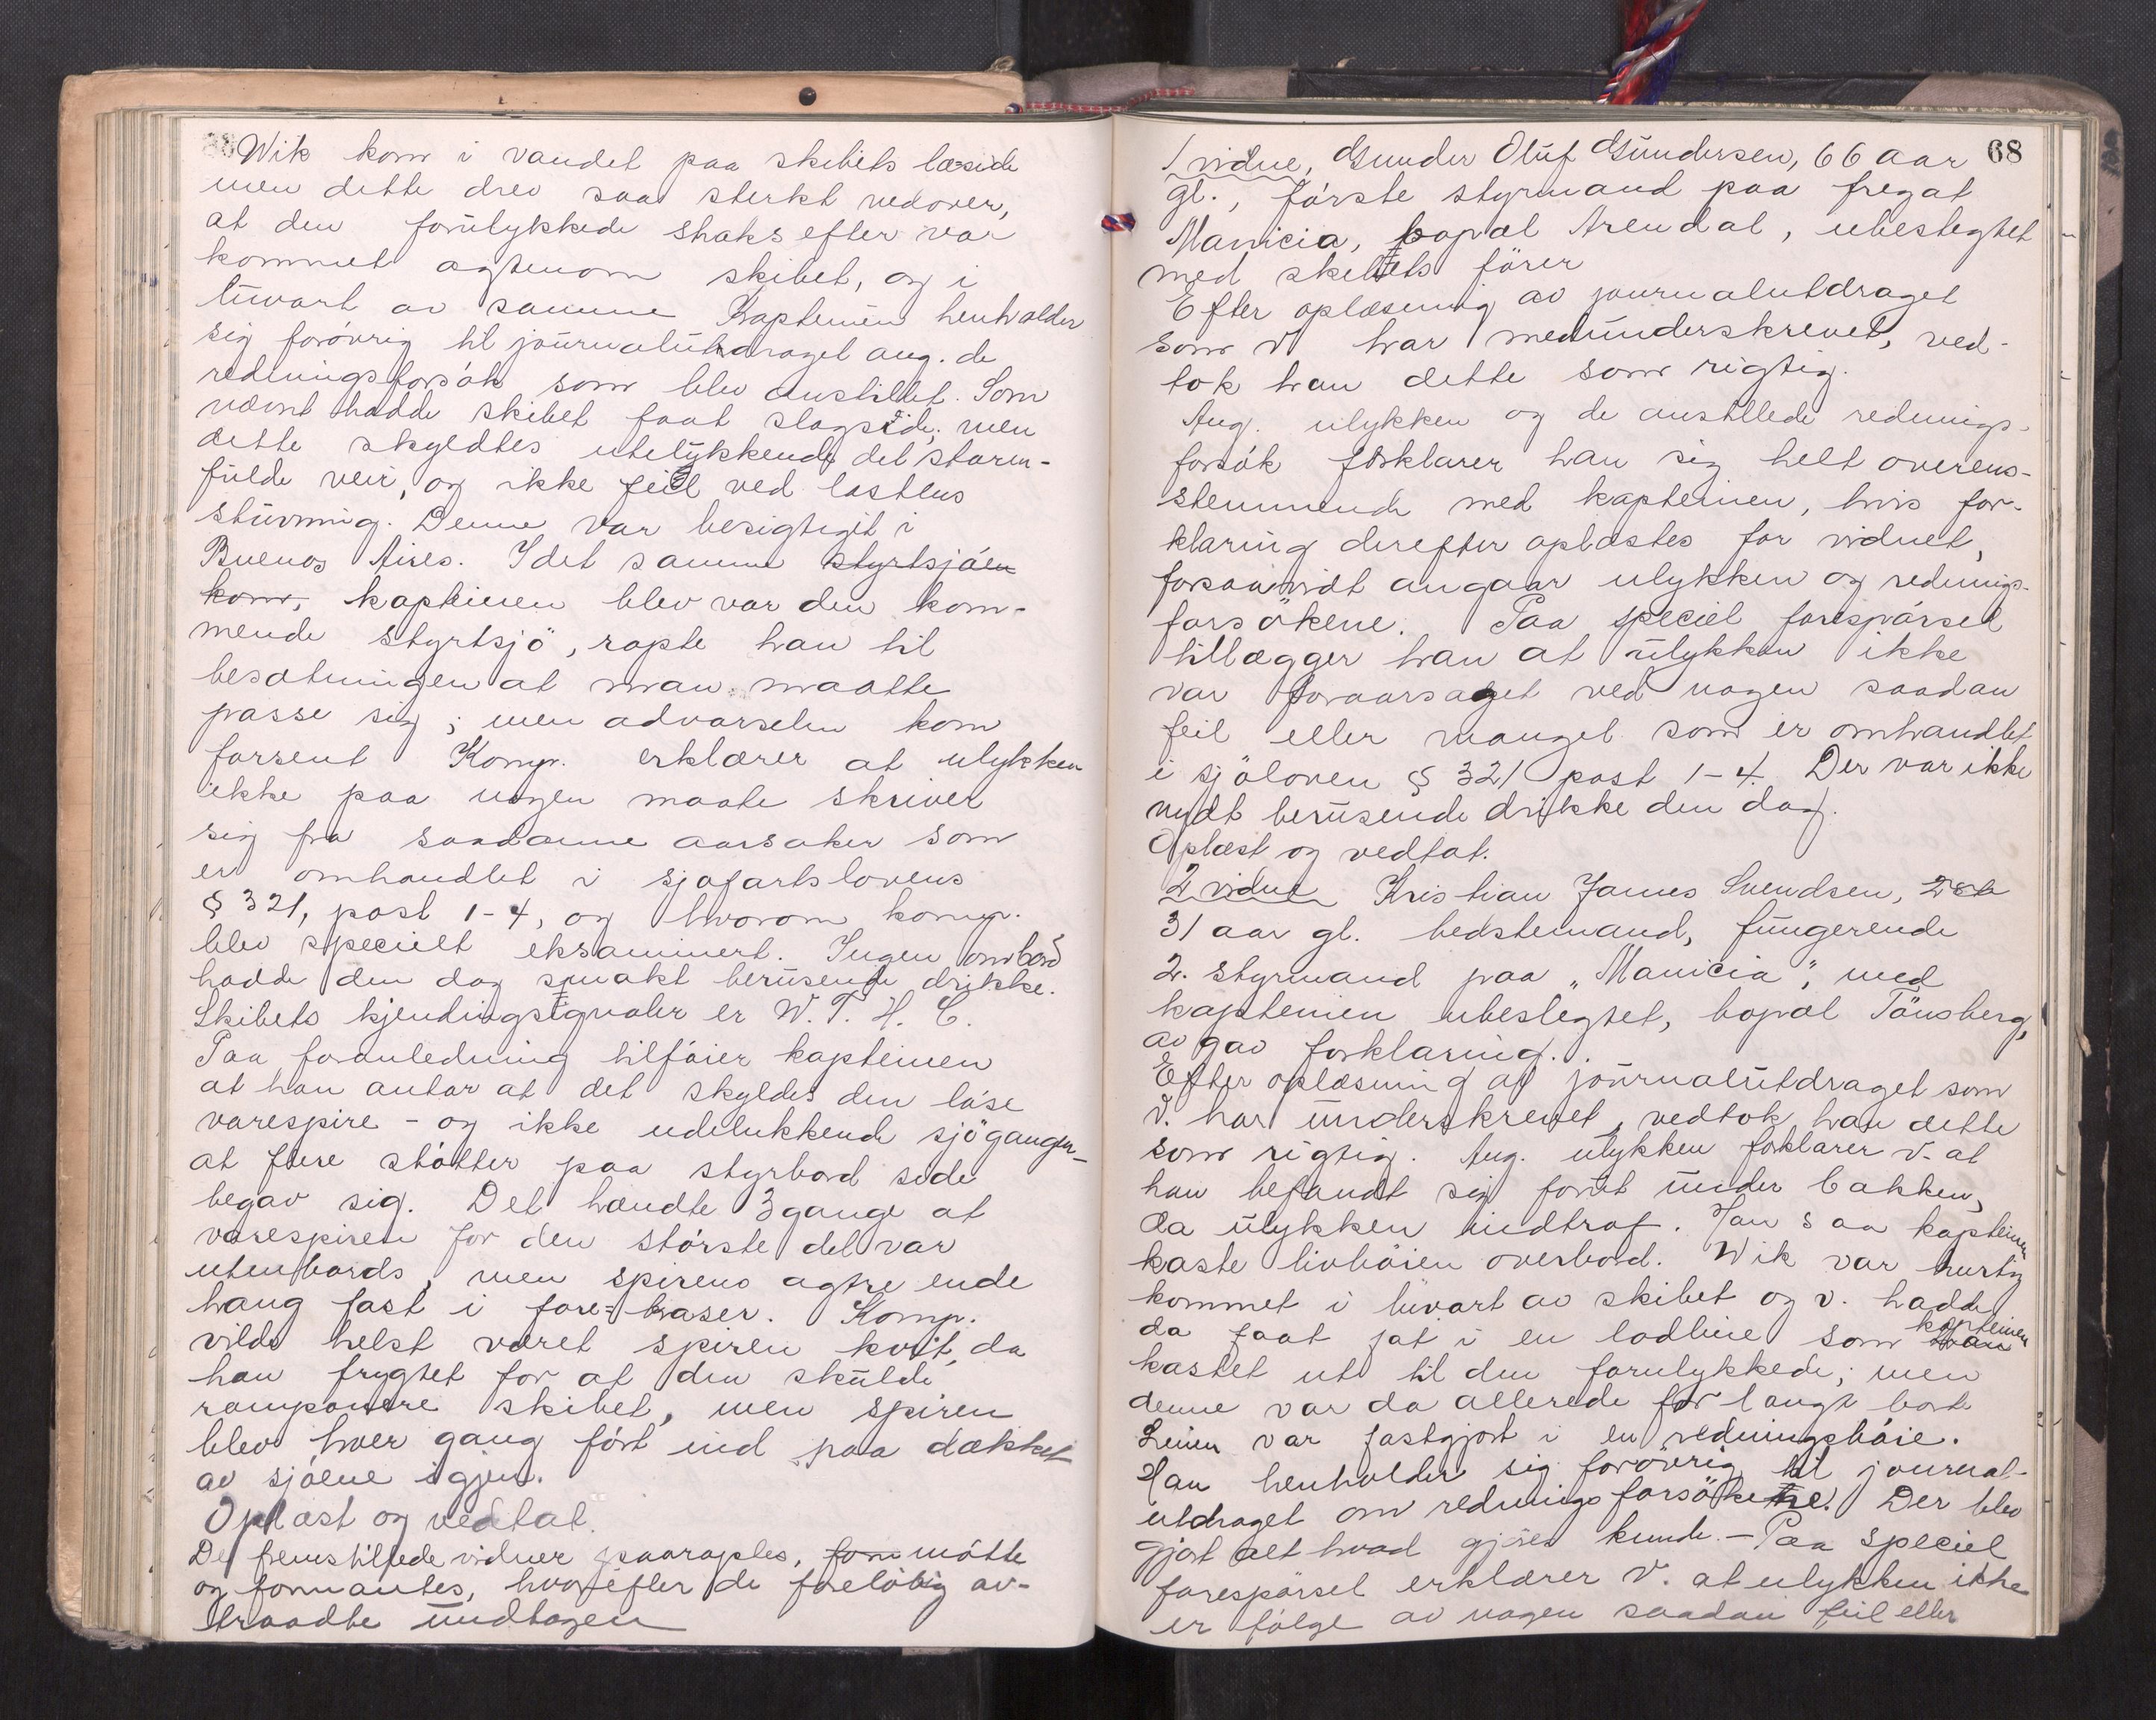 Wik kom i vandet paa skibets læside
men dette drev saa sterkt nedover,
at den forulykkede straks efter var
kommet agtenom skibet, og i
luvart av samme Kapteinen henholder
sig forövrig til journalutdraget ang. de
redningsforsök som blev anstillet. Som
nævnt hadde skibet faat slagside, men
dette skyldtes utelukkende det storm-
fulde veir, og ikke feil ved lastens
stuvning. Denne var besigtiget i
Buenos Aires. I det samme styrtsjöen
kom, kapteinen blev var den kom-
mende styrtsjö, ropte han til
besætningen at man maatte
passe sig; men advarselen kom
forsent Komp. erklærer at ulykken
ikke paa nogen maate skriver
sig fra saadanne aarsaker som
er omhandlet i sjøfartslovens
§ 321, post 1-4, og hvorom komp.
blev specielt eksaminert. Ingen ombord
hadde den dag smakt berusende drikke.
Skibets kjendingssignaler er W. T. H. C.
Paa foranledning tilföier kapteinen
at han antar at det skyldes den löse
varespire - og ikke udelukkende sjögangen-
at flere stötter paa styrbord side
begav sig. Det hændte 3 gange at
varespiren for den störste del var
utenbords, men spirens agtre ende
hang fast i fore-braser. Komp.
vilde helst været spiren kvit, da
han frygtet for at den skulde
ramponere skibet, men spiren
blev hver gang fört ind paa dækket
av sjöene igjen.
Oplæst og vedtat.
De fremstillede vidner paaraptes, som mötte
og formantes, hvorefter de foreløbig av-
traadte undtagen
68
1 vidne, Gunder Oluf Gundersen, 66 aar
gl., förste styrmand paa fregat
Manicia, bopæl Arendal, ubeslegtet
med skibets förer
Efter oplæsning av journalutdraget
som v. har medunderskrevet, ved-
tok han dette som rigtig.
Ang. ulykken og de anstillede rednings-
forsök forklarer han sig helt overens-
stemmende med kapteinen, hvis for-
klaring derefter oplæstes for vidnet,
forsaavidt angaar ulykken og rednings-
forsökene. Paa speciel forespörsel
tillægger han at ulykken ikke
var foraarsaget ved nogen saadan
feil eller mangel som er omhandlet
i sjöloven § 321 post 1-4. Der var ikke
nydt berusende drikke den dag.
Oplæst og vedtat.
2 vidne Kristian James Svendsen,
31 aar gl. bedstemand, fungerende
2. styrmand paa "Manicia", med
kapteinen ubeslegtet, bopæl Tönsberg,
avgav forklaring.
Efter oplæsning af journalutdraget som
V. har underskrevet, vedtok han dette
som rigtig. Ang. ulykken forklarer v. at
han befandt sig forut under bakken,
da ulykken indtraf. Han saa kapteinen
kaste livböien overbord. Wik var hurtig
kommet i luvart av skibet og v. hadde
da faat fat i en lodline som han kapteinen
kastet ut til den forulykkede; men
denne var da allerede for langt borte
Linen var fastgjort i en redningsböie.
Han henholder sig forövrig til journal-
utdraget om redningsforsökene. Der blev
gjort alt hvad gjöres kunde. - Paa speciel
forespörsel erklærer V. at ulykken ikke
er fölge av nogen saadan feil eller